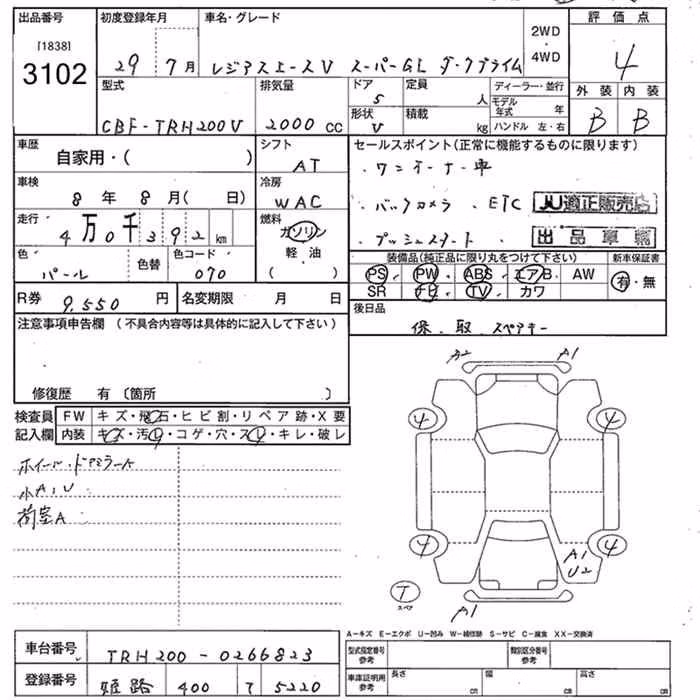 出品番号 初度登録年月 車名・グレード 2WD 評価点
[1838]
3102 29年7月 レジアスエースV スーパーGL ダークプライム ・4WD 4
型式 排気量 ドア 5 定員 人 ディーラー・並行 外装 内装
CBF-TRH200V 2000cc 形状 V 積載 kg モデル年式 年 B B
ハンドル 左・右
車歴 シフト セールスポイント(正常に機能するものに限ります)
自家用・( ) AT ・ワンオーナー車
車検 冷房
8年8月( 日) WAC ・バックカメラ ・ETC JU適正販売店
走行 燃料
4万0千392km ガソリン ・プッシュスタート 出品車輌
色 色替 色コード 軽油 装備品(純正品に限り丸をつけて下さい) 新車保証書
パール 070 ( ) PS PW ABS エアB AW 有・無
SR TV カワ
R券 9,550円 名変期限 月 日 後日品
注意事項申告欄 (不具合内容等は具体的に記入して下さい) 保.取.スペアキー
修復歴 有 〔箇所 〕
A2 A1
検査員 FW キズ・飛石・ヒビ割・リペア跡・X要
記入欄 内装 キズ・汚レ・コゲ・穴・スレ・キレ・破レ
4 4
ホイール・ドアミラーA
小A,U
荷室A
4 4
A1
U2
T
スペア
A1
A-キズ E-エクボ U-凹み W-補修跡 S-サビ C-腐食 XX-交換済
車台番号 TRH200-0266823 型式指定番号 参考 類別区分番号 参考
登録番号 姫路 400 て 5220 車庫証明用 参考 長さ cm 幅 cm 高さ cm